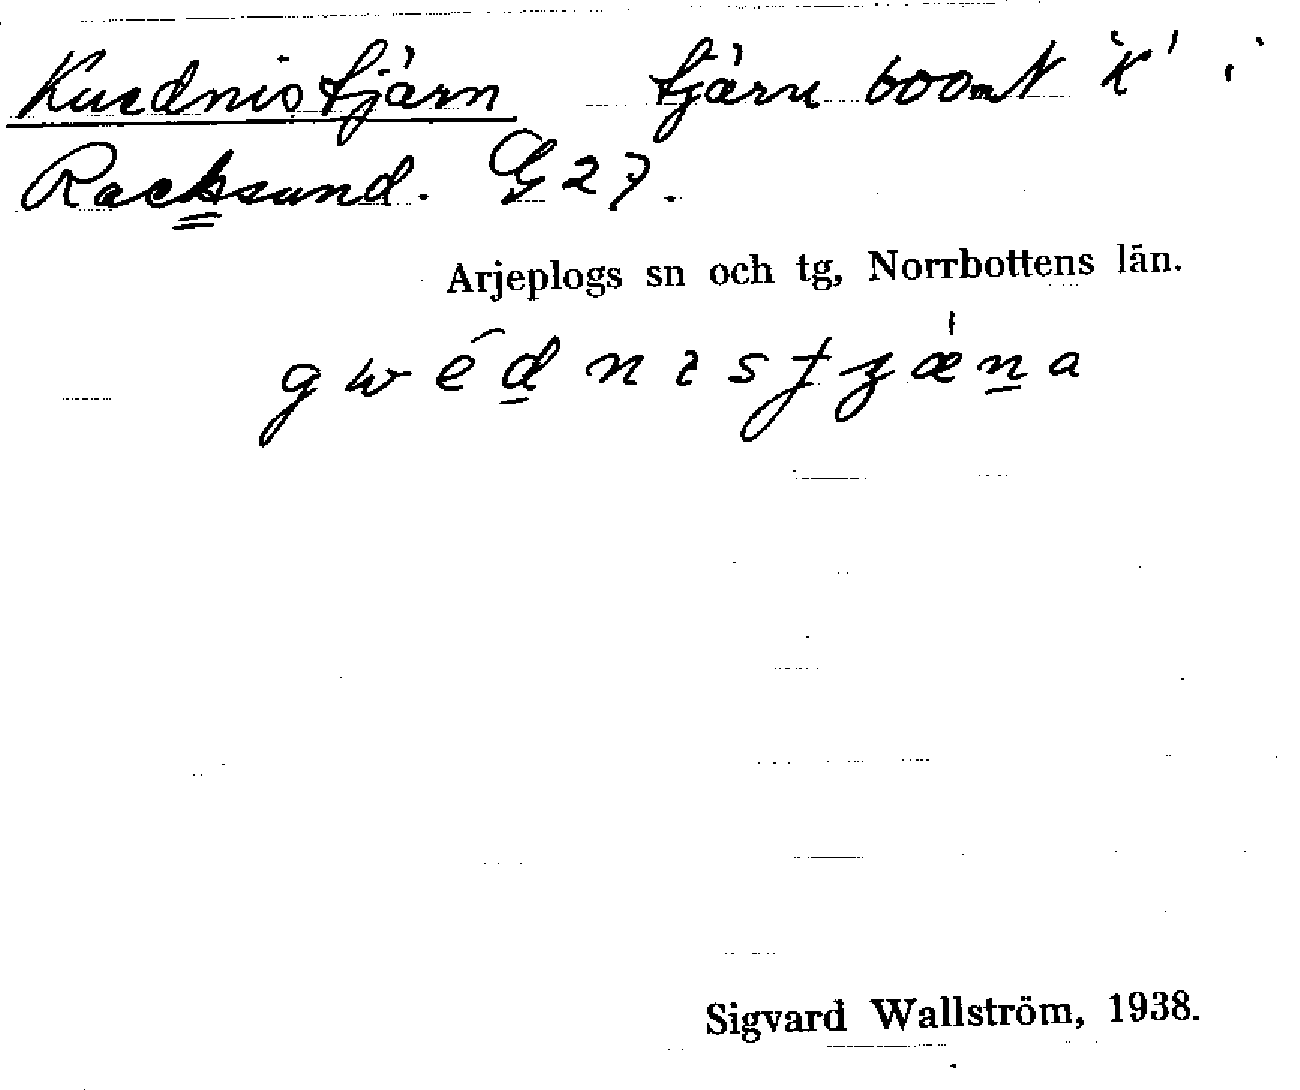 Kuednistjärn tjärn 600 m N 'K' i
Racksund. G 27.
Arjeplogs sn och tg, Norrbottens län.
Sigvard Wallström, 1938.